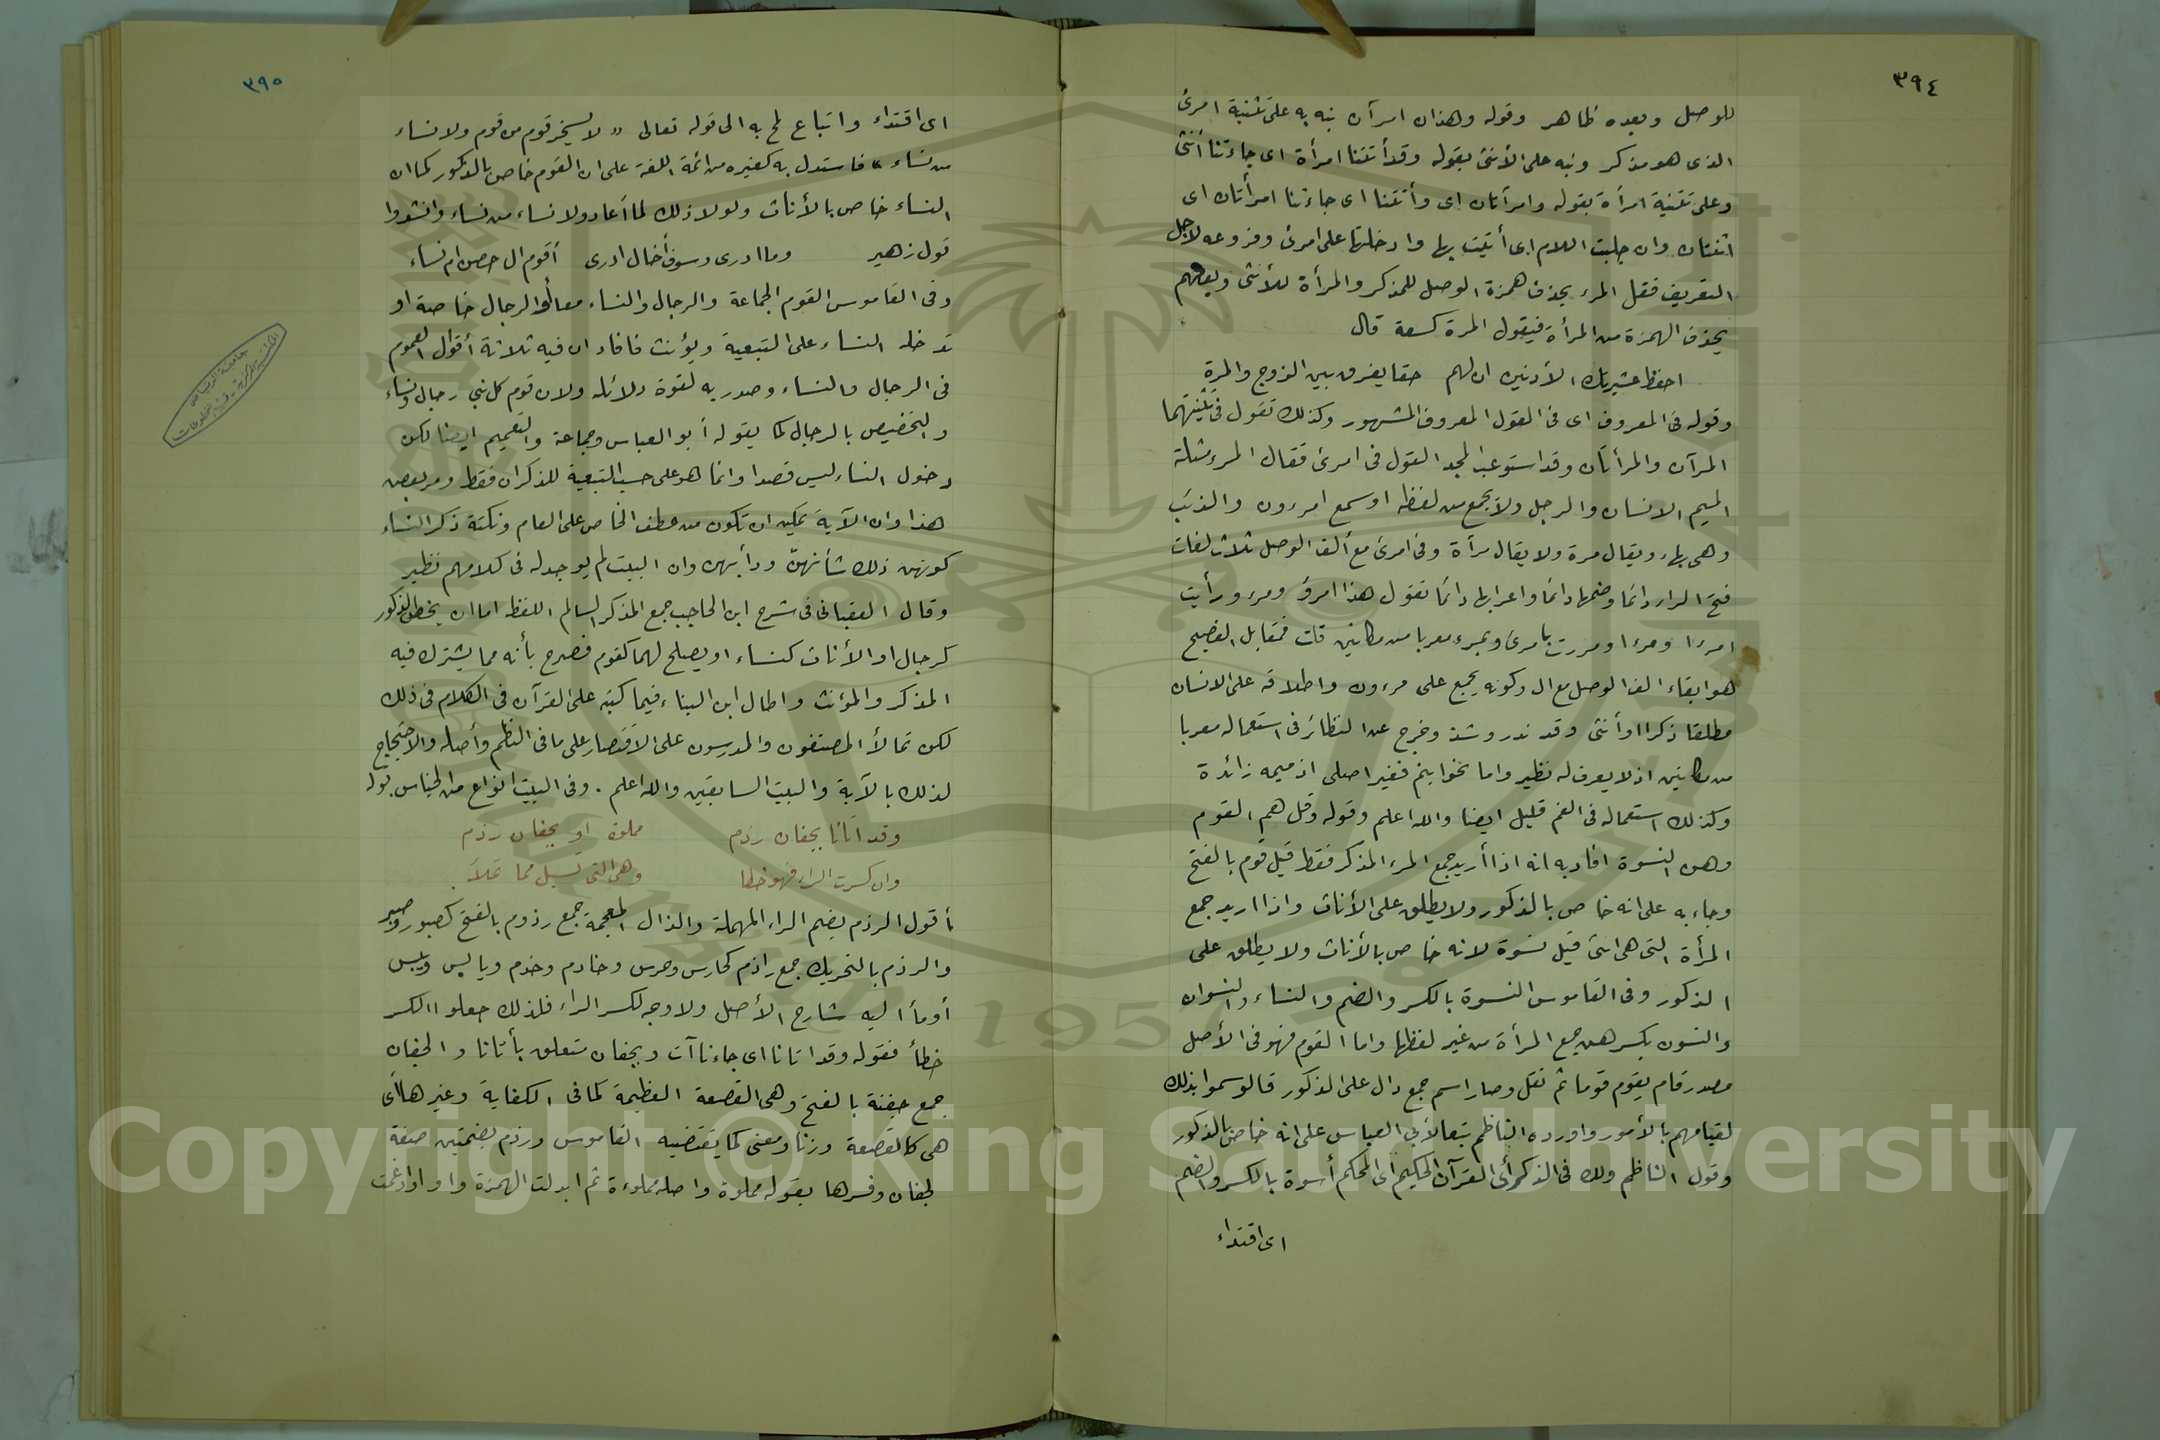 ٣٩٤
للوصل وبعده ظاهر وقوله وهذان امرآن نبه به على تثنية امرئ
الذى هو مذكر ونبه على الأنثى بقوله وقد أتتنا امرأة اى جاءتنا أنثى
وعلى تثنية امرأة بقوله وامرأتان اى وأتتنا اى جاءتنا امرأتان اى
انثتان وان جلبت اللام اى أتيت بها وادخلتها على امرئ وفروعه لاجل
التعريف فقل المرء بحذف همزة الوصل للمذكر والمرأة للأنثى وبعضهم
يحذف الهمزة من المرأة فيقول المرة كسعة قال
احفظ عشيرتك الأدنين ان لهم حقا يفرق بين الزوج والمرة
وقوله فى المعروف اى فى القول المعروف المشهور وكذلك تقول فى تثنيتهما
المرآن والمرأتان وقد استوعب المجد القول فى امرئ فقال المرء مثلثة
الميم الانسان والرجل ولا يجمع من لفظه او سمع امرءون والذئب
وهى بهاء ويقال مرة ولا يقال مرأة وفى امرئ مع ألف الوصل ثلاث لغات
فتح الراء دائما وضمها دائما واعرابها دائما تقول هذا امرؤ ومرء ورأيت
امرءا ومرءا ومررت بامرئ وبمرء معربا من مكانين قلت فمقابل الفصيح
هو ابقاء الف الوصل مع ال وكونه يجمع على مرءون واطلاقه على الانسان
مطلقا ذكرا او أنثى وقد ندر وشذ وخرج عن النظائر فى استعماله معربا
من مكانين اذ لا يعرف له نظير واما نحو ابنم فغير اصلى اذ ميمه زائدة
وكذلك استعماله فى الفم قليل ايضا والله اعلم وقوله وقل هم القوم
وهن النسوة افاد به انه اذا أريد جمع المرء المذكر فقط قيل قوم بالفتح
وجاء به على انه خاص بالذكور ولا يطلق على الأناث واذا اريد جمع
المرأة التى هى انثى قيل نسوة لانه خاص بالأناث ولا يطلق على
الذكور وفى القاموس النسوة بالكسر والضم والنساء والنسوان
والنسون بكسرهن جمع المرأة من غير لفظها واما القوم فهو فى الأصل
مصدر قام يقوم قوما ثم نقل وصار اسم جمع دال على الذكور قالوا سموا بذلك
لقيامهم بالأمور واورده الناظم تبعا لأبى العباس على انه خاص بالذكور
وقول الناظم ولك فى الذكر أى القرآن الحكيم اى المحكم أسوة بالكسر والضم
اى اقتداء
٣٩٥
اى اقتداء واتباع لمح به الى قوله تعالى « لا يسخر قوم من قوم ولا نساء
من نساء » فاستدل به كغيره من ائمة اللغة على ان القوم خاص بالذكور كما ان
النساء خاص بالأناث ولولا ذلك لما أعاد ولا نساء من نساء وانشدوا
قول زهير وما ادرى وسوف أخال ادرى أقوم ال حصن ام نساء
وفى القاموس القوم الجماعة والرجال والنساء معا أو الرجال خاصة او
تدخله النساء على التبعية ويؤنث فافاد ان فيه ثلاثة أقوال العموم
فى الرجال والنساء وصدر به لقوة دلائله ولان قوم كل نبى رجال ونساء
والتخصيص بالرجال كما يقوله أبو العباس وجماعة والتعميم ايضا لكن
دخول النساء ليس قصدا وانما هو على حسب التبعية للذكران فقط ومر بعض
هذا وان الآية يمكن ان تكون من عطف الخاص على العام ونكتة ذكر النساء
كونهن ذلك شأنهن ودأبهن وان البيت لم يوجد له فى كلامهم نظير
وقال العقبانى فى شرح ابن الحاجب جمع المذكر السالم اللفظ اما ان يختص بالذكور
كرجال او الأناث كنساء او يصلح لهما كقوم فصرح بأنه مما يشترك فيه
المذكر والمؤنث واطال ابن البناء فيما كتبه على القرآن فى الكلام فى ذلك
لكن تمالأ المصنفون والمدرسون على الاقتصار على ما فى النظم وأصله والاحتجاج
لذلك بالآية والبيت السابقين والله اعلم . وفى البيت انواع من الجناس قوله
وقد اتانا بجفان رذم مملوة او بجفان رذم
وان كسرت الراء فهو خطا وهى التى تسيل مما تملأ
أقول الرذم بضم الراء المهملة والذال المعجمة جمع رذوم بالفتح كصبور وصبر
والرذم بالتحريك جمع راذم كحارس وحرس وخادم وخدم ويابس ويبس
أومأ اليه شارح الأصل ولا وجه لكسر الراء فلذلك جعلوا الكسر
خطأ فقوله وقد اتانا اى جاءنا آت وبجفان متعلق بأتانا والجفان
جمع جفنة بالفتح وهى القصعة العظيمة كما فى الكفاية وغيرها أى
هى كالقصعة وزنا ومعنى كما يقتضيه القاموس ورذم بضمتين صفة
لجفان وفسرها بقوله مملوة واصله مملوءة ثم ابدلت الهمزة واوا وادغمت
Copyright © King Saud University
1957